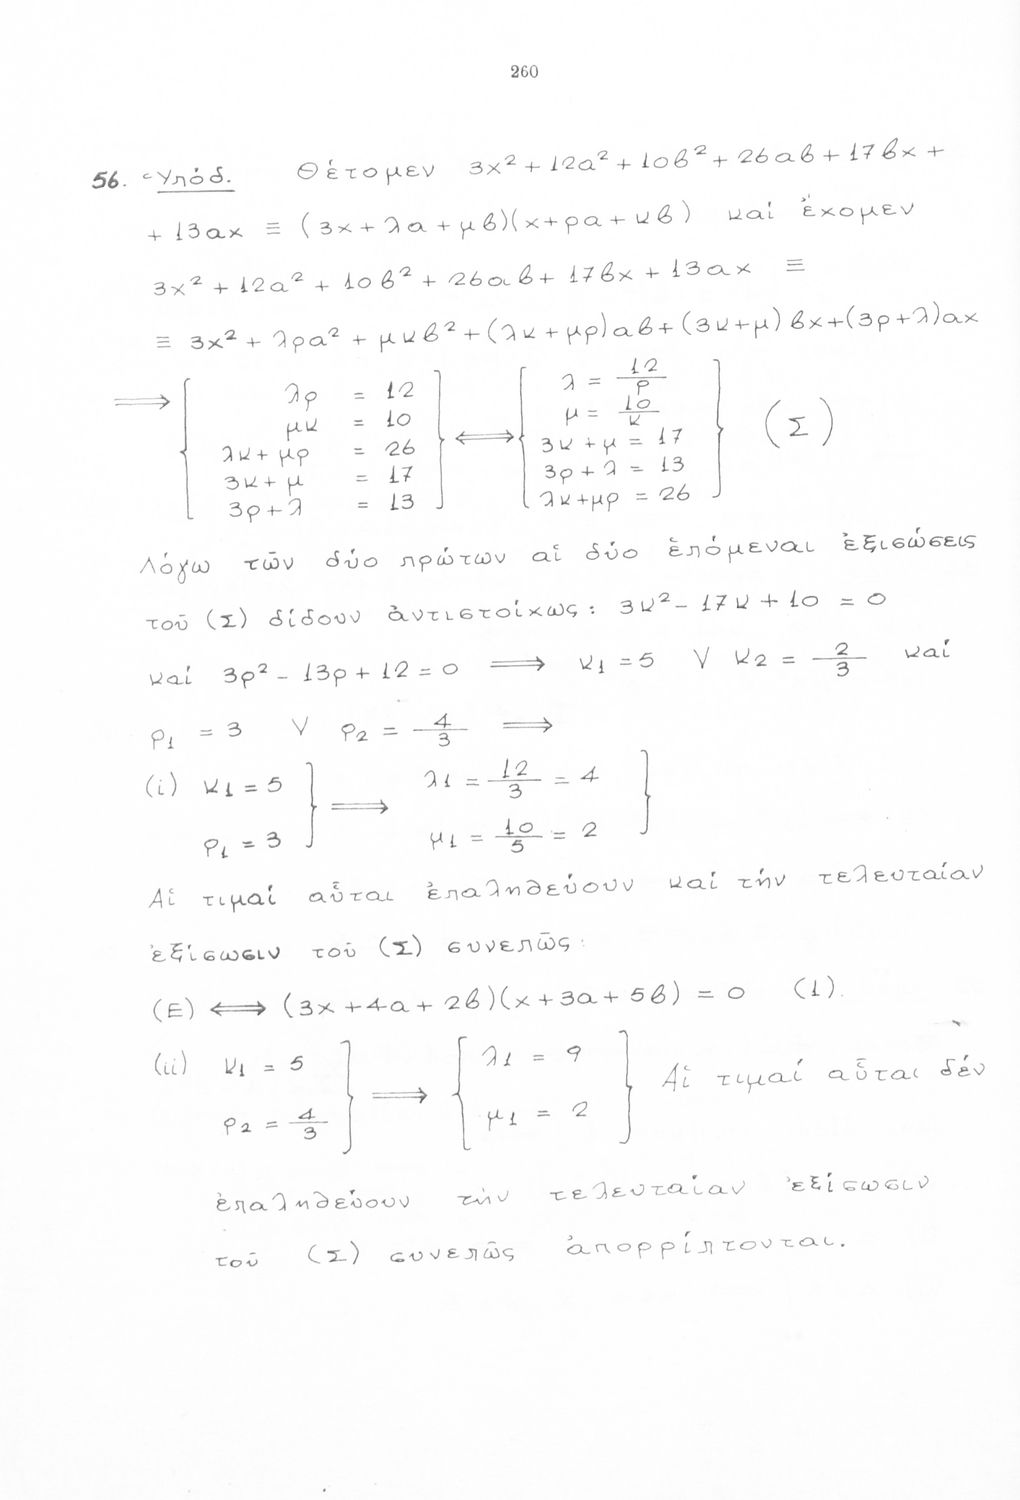 260
56. Ὑπόδ. Θέτομεν 3x² + 12α² + 10β² + 26αβ + 17βx +
+ 13αx ≡ (3x + λα + μβ)(x + ρα + κβ) καί ἔχομεν
3x² + 12α² + 10β² + 26αβ + 17βx + 13αx ≡
≡ 3x² + λρα² + μκβ² + (λκ + μρ)αβ + (3κ + μ)βx + (3ρ + λ)αx
⟹ { λρ = 12 } ⟺ { λ = 12/ρ } (Σ)
μκ = 10 μ = 10/κ
λκ + μρ = 26 3κ + μ = 17
3κ + μ = 17 3ρ + λ = 13
3ρ + λ = 13 λκ + μρ = 26
Λόγω τῶν δύο πρώτων αἱ δύο ἑπόμεναι ἐξισώσεις
τοῦ (Σ) δίδουν ἀντιστοίχως: 3κ² - 17κ + 10 = 0
καί 3ρ² - 13ρ + 12 = 0 ⟹ κ₁ = 5 V κ₂ = 2/3 καί
ρ₁ = 3 V ρ₂ = 4/3 ⟹
(i) κ₁ = 5 } ⟹ λ₁ = 12/3 = 4 }
ρ₁ = 3 μ₁ = 10/5 = 2
Αἱ τιμαί αὗται ἐπαληθεύουν καί τήν τελευταίαν
ἐξίσωσιν τοῦ (Σ) συνεπῶς:
(Ε) ⟺ (3x + 4α + 2β)(x + 3α + 5β) = 0 (1).
(ii) κ₁ = 5 } ⟹ { λ₁ = 9 } Αἱ τιμαί αὗται δέν
ρ₂ = 4/3 μ₁ = 2
ἐπαληθεύουν τήν τελευταίαν ἐξίσωσιν
τοῦ (Σ) συνεπῶς ἀπορρίπτονται.